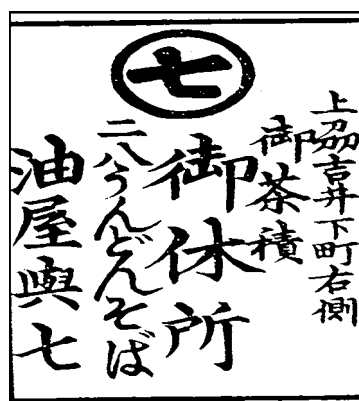 七
上刕吉井下町右側
御茶積
御休所
二八うんどんそば
油屋與七